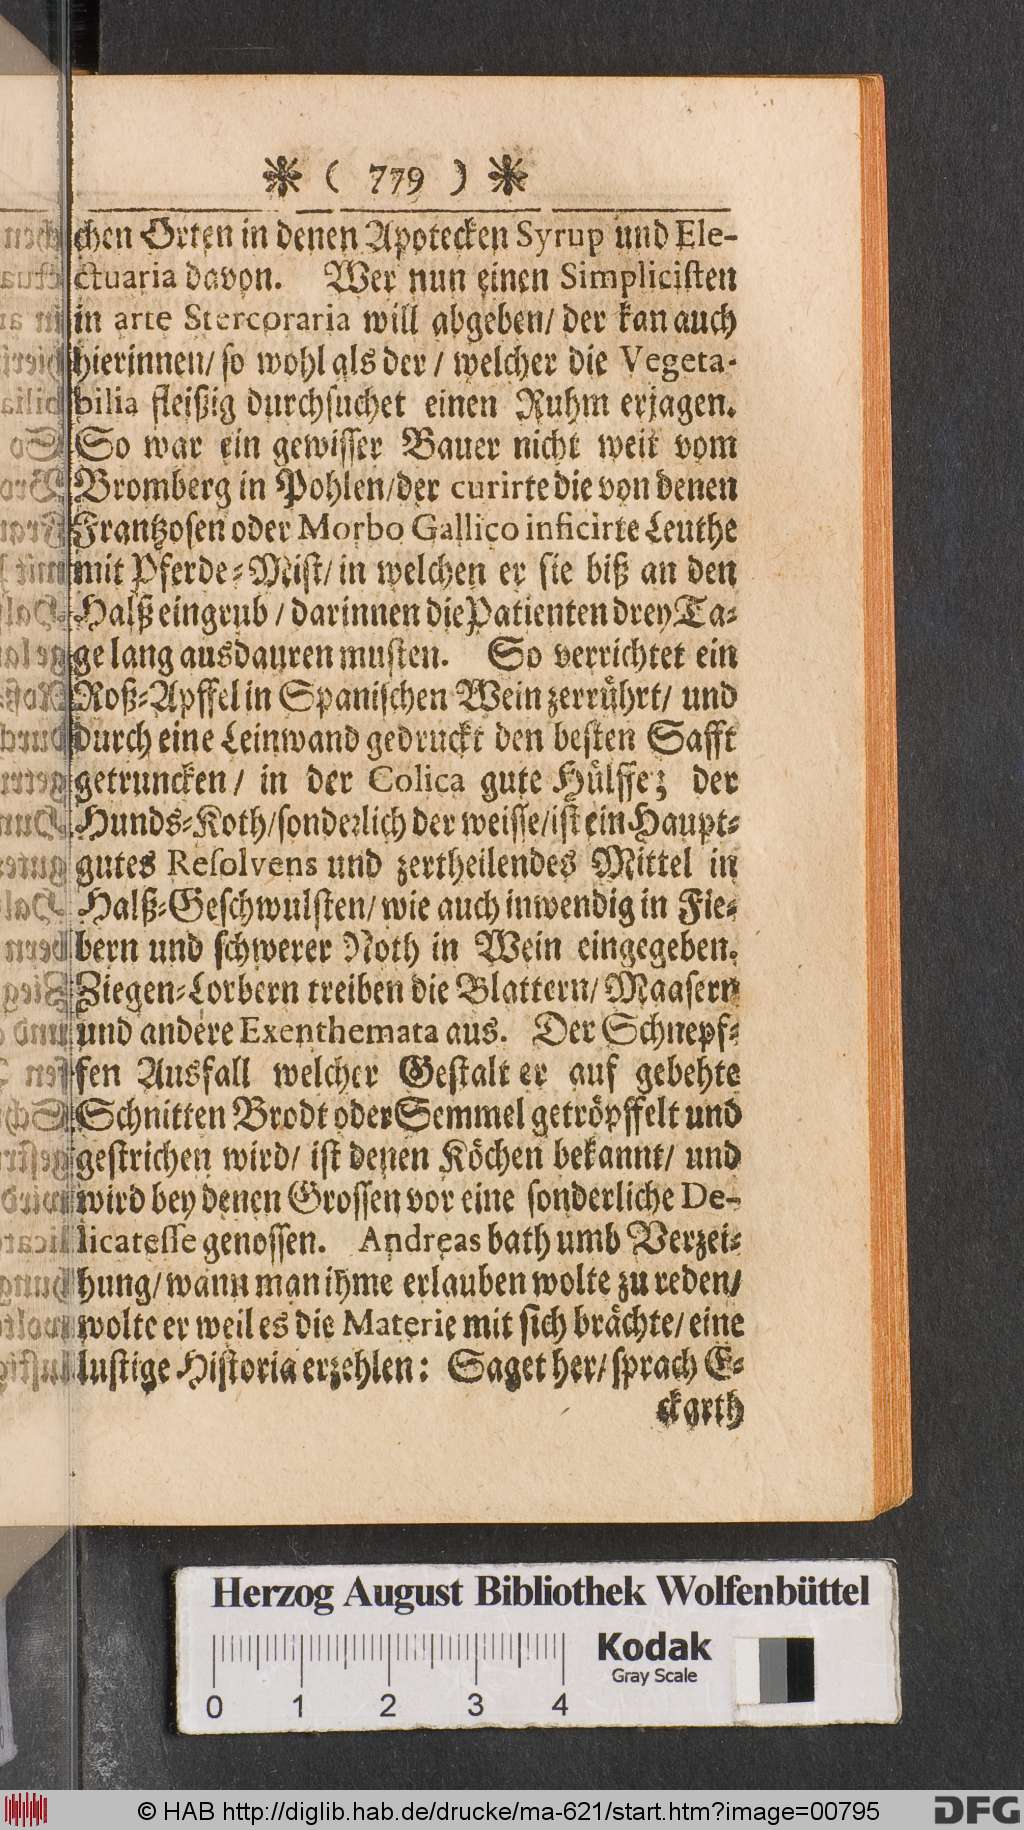 ❋ ( 779 ) ❋
chen Orten in denen Apotecken Syrup und Ele-
ctuaria davon. Wer nun einen Simplicisten
in arte Stercoraria will abgeben/ der kan auch
hierinnen/ so wohl als der / welcher die Vegeta-
bilia fleißig durchsuchet einen Ruhm erjagen.
So war ein gewisser Bauer nicht weit vom
Bromberg in Pohlen/der curirte die von denen
Frantzosen oder Morbo Gallico inficirte Leuthe
mit Pferde-Mist/ in welchen er sie biß an den
Halß eingrub / darinnen die Patienten drey Ta-
ge lang ausdauren musten. So verrichtet ein
Roß-Apffel in Spanischen Wein zerrührt/ und
durch eine Leinwand gedruckt den besten Safft
getruncken/ in der Colica gute Hülffe; der
Hunds-Koth/sonderlich der weisse/ist ein Haupt-
gutes Resolvens und zertheilendes Mittel in
Halß-Geschwulsten/ wie auch inwendig in Fie-
bern und schwerer Noth in Wein eingegeben.
Ziegen-Lorbern treiben die Blattern/ Maasern
und andere Exenthemata aus. Der Schnepf-
fen Ausfall welcher Gestalt er auf gebehte
Schnitten Brodt oder Semmel getröpffelt und
gestrichen wird/ ist denen Köchen bekannt/ und
wird bey denen Grossen vor eine sonderliche De-
licatesse genossen. Andreas bath umb Verzei-
hung/ wann man ihme erlauben wolte zu reden/
wolte er weil es die Materie mit sich brächte/ eine
lustige Historia erzehlen: Saget her/ sprach E-
ckarth
Herzog August Bibliothek Wolfenbüttel
Kodak
Gray Scale
0 1 2 3 4
© HAB http://diglib.hab.de/drucke/ma-621/start.htm?image=00795
DFG